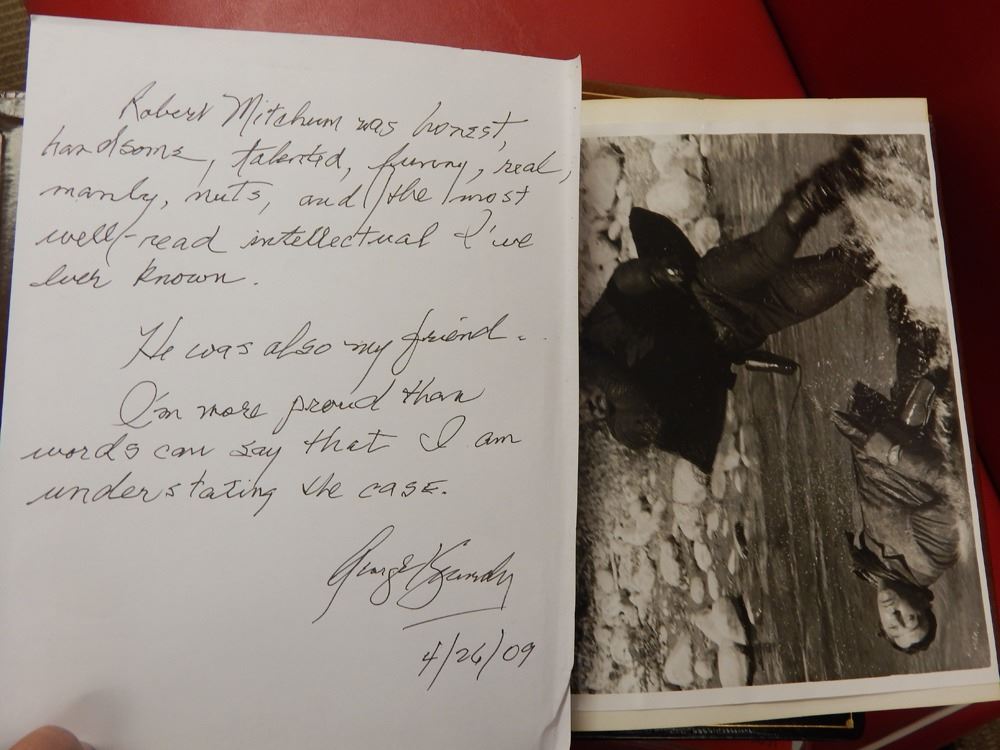 Robert Mitchum was honest,
handsome, talented, funny, real,
manly, nuts, and the most
well-read intellectual I've
ever known.
He was also my friend.
I'm more proud than
words can say that I am
understating the case.
George Kennedy
4/26/09